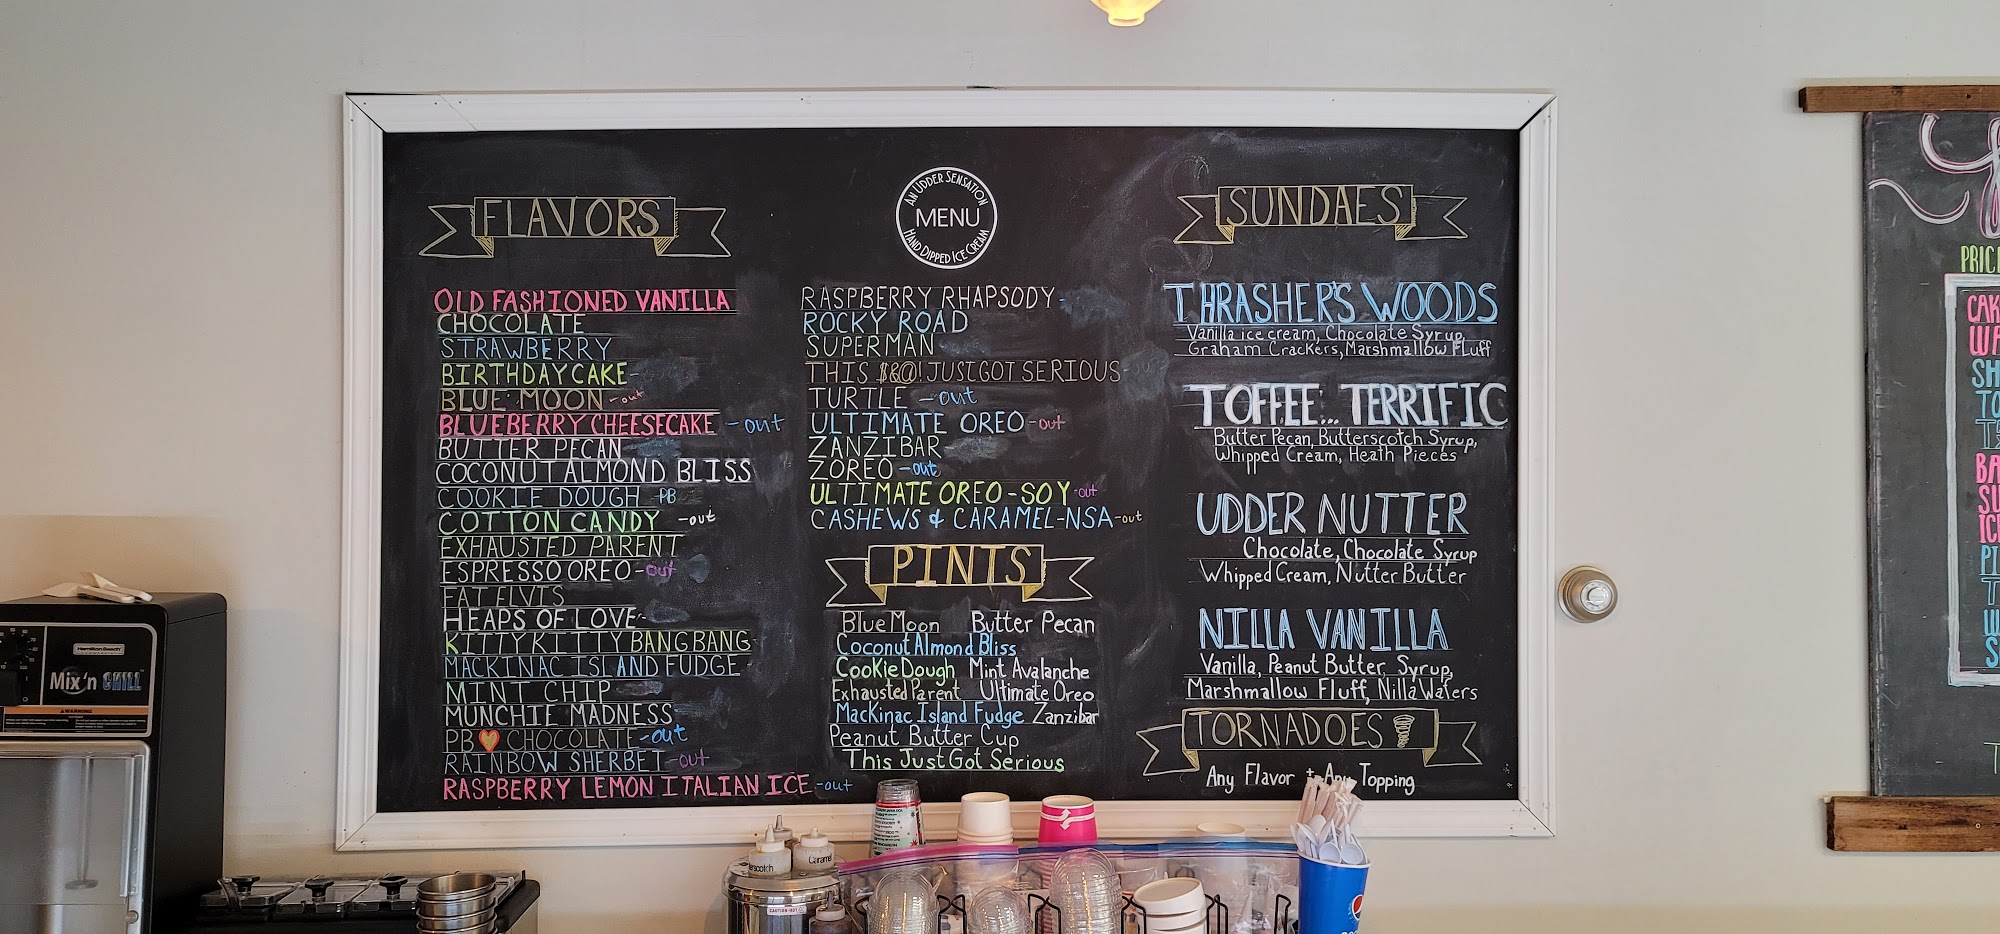 FLAVORS
OLD FASHIONED VANILLA
CHOCOLATE
STRAWBERRY
BIRTHDAY CAKE-
BLUE MOON -out
BLUEBERRY CHEESECAKE -out
BUTTER PECAN
COCONUT ALMOND BLISS
COOKIE DOUGH -PB
COTTON CANDY -out
EXHAUSTED PARENT
ESPRESSO OREO-out
FAT ELVIS
HEAPS OF LOVE-
KITTY KITTY BANG BANG
MACKINAC ISLAND FUDGE-
MINT CHIP
MUNCHIE MADNESS
PB CHOCOLATE-out
RAINBOW SHERBET-out
RASPBERRY LEMON ITALIAN ICE-out
AN UDDER SENSATION
MENU
HAND DIPPED ICE CREAM
RASPBERRY RHAPSODY-
ROCKY ROAD
SUPERMAN
THIS $&@! JUST GOT SERIOUS
TURTLE -out
ULTIMATE OREO-out
ZANZIBAR
ZOREO-out
ULTIMATE OREO-SOY-out
CASHEWS & CARAMEL-NSA-out
PINTS
Blue Moon Butter Pecan
Coconut Almond Bliss
Cookie Dough Mint Avalanche
Exhausted Parent Ultimate Oreo
Mackinac Island Fudge Zanzibar
Peanut Butter Cup
This Just Got Serious
SUNDAES
THRASHER'S WOODS
Vanilla ice cream, Chocolate Syrup,
Graham Crackers, Marshmallow Fluff
TOFFEE... TERRIFIC
Butter Pecan, Butterscotch Syrup,
Whipped Cream, Heath Pieces
UDDER NUTTER
Chocolate, Chocolate Syrup
Whipped Cream, Nutter Butter
NILLA VANILLA
Vanilla, Peanut Butter, Syrup,
Marshmallow Fluff, Nilla Wafers
TORNADOES
Any Flavor + Any Topping
PRIC
CAK
WA
SH
TO
BA
SU
ICE
PI
Hamilton Beach
Mix'n CHILL
WARNING
Caramel
CAUTION-HOT